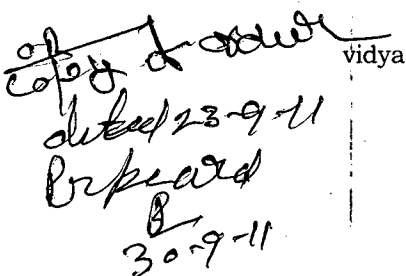 of
copy of order
vidya
dated 23-9-11
Prepeared
30-9-11